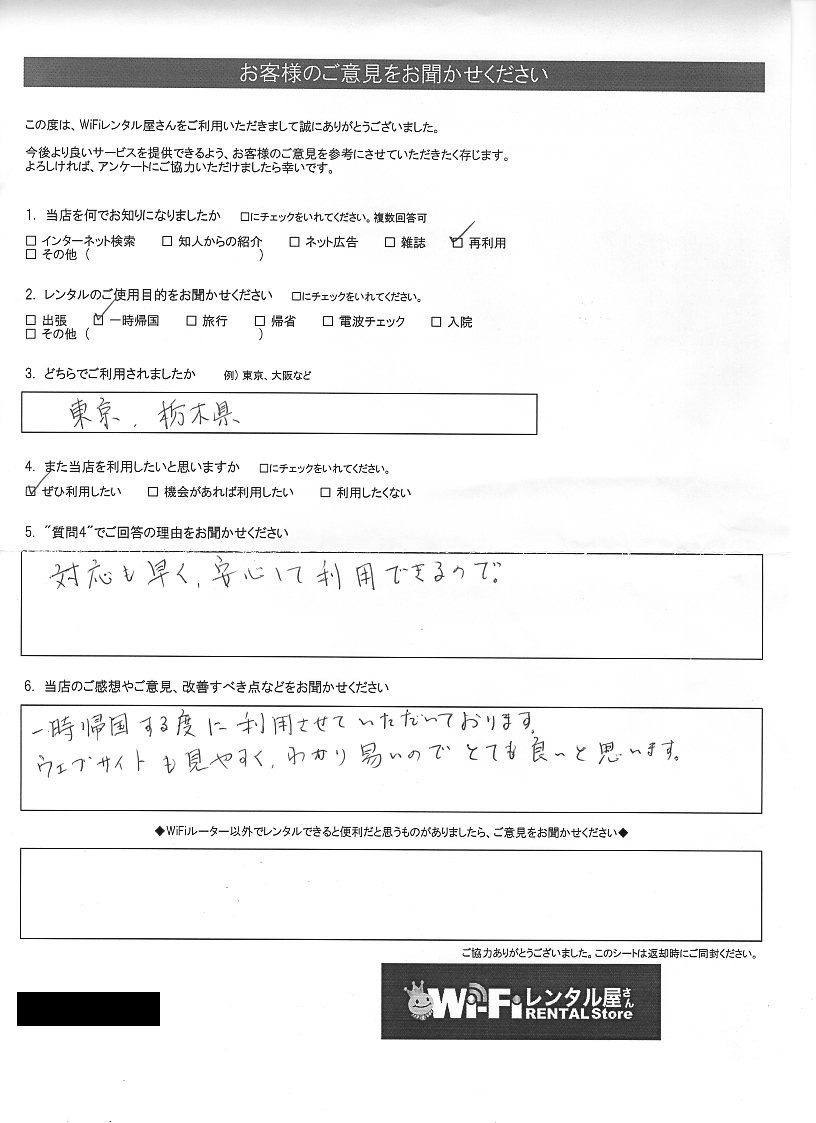 お客様のご意見をお聞かせください
この度は、WiFiレンタル屋さんをご利用いただきまして誠にありがとうございました。
今後より良いサービスを提供できるよう、お客様のご意見を参考にさせていただきたく存じます。
よろしければ、アンケートにご協力いただけましたら幸いです。
1. 当店を何でお知りになりましたか □にチェックをいれてください。複数回答可
□ インターネット検索 □ 知人からの紹介 □ ネット広告 □ 雑誌 ☑ 再利用
□ その他 ( )
2. レンタルのご使用目的をお聞かせください □にチェックをいれてください。
□ 出張 ☑ 一時帰国 □ 旅行 □ 帰省 □ 電波チェック □ 入院
□ その他 ( )
3. どちらでご利用されましたか 例) 東京、大阪など
東京、栃木県
4. また当店を利用したいと思いますか □にチェックをいれてください。
☑ ぜひ利用したい □ 機会があれば利用したい □ 利用したくない
5. "質問4"でご回答の理由をお聞かせください
対応も早く、安心して利用できるので。
6. 当店のご感想やご意見、改善すべき点などをお聞かせください
一時帰国する度に利用させていただいております。
ウェブサイトも見やすく、わかり易いのでとても良いと思います。
◆WiFiルーター以外でレンタルできると便利だと思うものがありましたら、ご意見をお聞かせください◆
ご協力ありがとうございました。このシートは返却時にご同封ください。
Wi-Fiレンタル屋さん
RENTAL Store